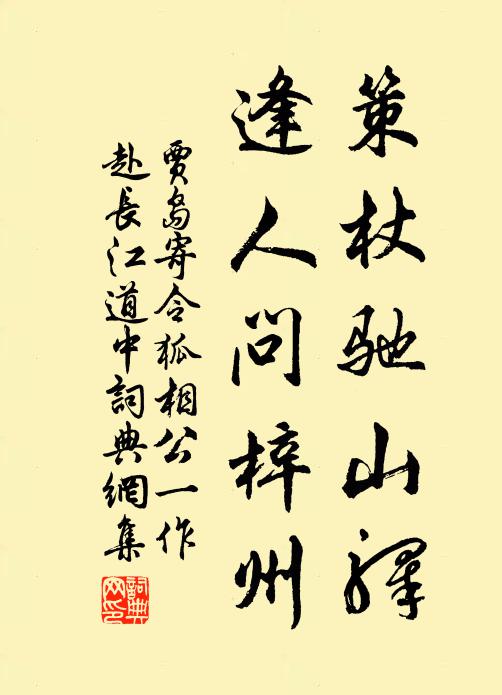 策杖馳山驛
逢人問梓州
賈島寄令狐相公一作
赴長江道中詞典網集
詞典
网印